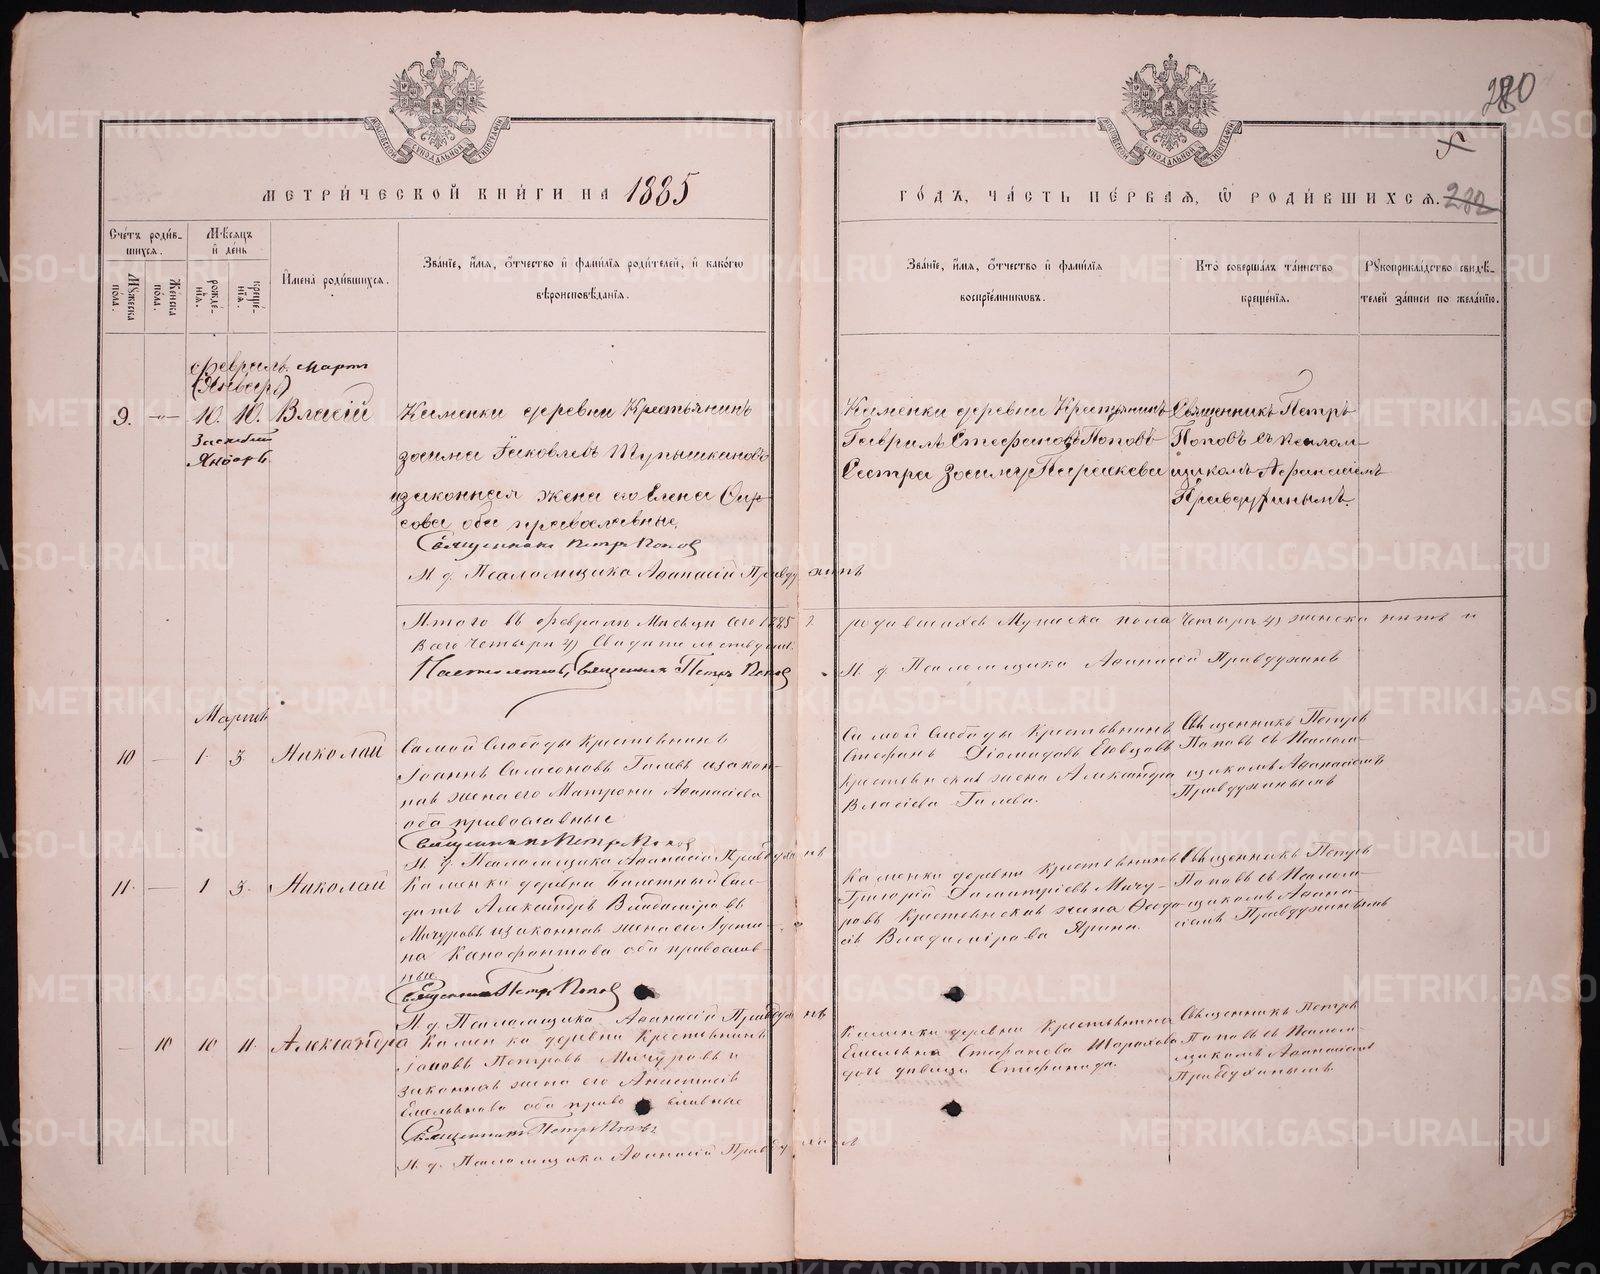 280
МЕТРИ́ЧЕСКОЙ КНИ́ГИ НА 1885
ГО́ДЪ, ЧА́СТЬ ПЕ́РВАЯ, Ѿ РОДИ́ВШИХСЯ.
Сче́тъ роди́в-
шихся.
Мужеска по́ла.
Женска по́ла.
Мѣсяцъ и де́нь
рожде́-
нїя.
креще́-
нїя.
Имена̀ роди́вшихся.
Зва́нїе, и́мя, о́тчество и фами́лїя роди́телей, и како́гѡ
вѣроисповѣ́данїя.
Зва́нїе, и́мя, о́тчество и фами́лїя
воспрїе́мниковъ.
Кто̀ соверша́лъ та́инство
креще́нїя.
Рукоприкла́дство свидѣ́-
телей за́писи по жела́нїю.
Февраль. Мартъ
(Январь)
9. 10. 10. Власій
Январь
Каменки деревни Крестьянинъ
Зосима Іаковлевъ
изаконная жена его Елена
оба православные.
Священникъ Петръ Поповъ
И. д. Псаломщика Аѳанасій Правдухинъ
Каменки деревни Крестьянинъ
Гавриилъ Стефановъ Поповъ
Сестра Зосимы Параскева
Священникъ Петръ
Поповъ съ псалом-
щикомъ Аѳанасіемъ
Правдухинымъ.
Итого въ феврале Месяце сего 1885 г. родившихся Мужеска пола Четыре 4) женска
Всего Четыре 4)
Священникъ Петръ Поповъ
И. д. Псаломщика Аѳанасій Правдухинъ
Мартъ
10 — 1 3 Николай
Самой Слободы Крестьянинъ
Іоаннъ Симеоновъ Галевъ изакон-
ная жена его Матрона Аѳанасіева
оба православные
Священникъ Петръ Поповъ
И. д. Псаломщика Аѳанасій Правдухинъ
Самой Слободы Крестьянинъ
Стефанъ
Крестьянская жена Александра
Власіева Галева.
Священникъ Петръ
Поповъ съ Псалом-
щикомъ Аѳанасіемъ
Правдухинымъ
11. — 1 3 Николай
Каменки деревни Билетный Сол-
датъ Александръ Владиміровъ
Мичуровъ изаконная жена его
на оба православ-
ные
Священникъ Петръ Поповъ
И. д. Псаломщика Аѳанасій Правдухинъ
Каменки деревни Крестьянинъ
Григорій Димитріевъ Мичу-
ровъ Крестьянская жена Ѳеодо-
сія Владимірова
Священникъ Петръ
Поповъ съ Псалом-
щикомъ Аѳана-
сіемъ Правдухинымъ
— 10 10 11. Александра
Каменка деревни Крестьянинъ
Іаковъ Петровъ Мичуровъ и
законная жена его Анастасія
Емельянова оба православные
Священникъ Петръ Поповъ
И. д. Псаломщика Аѳанасій Правдухинъ
Каменки деревни Крестьянина
Емельяна Стефанова
дочь девица Степанида.
Священникъ Петръ
Поповъ съ Псалом-
щикомъ Аѳанасіемъ
Правдухинымъ
METRIKI.GASO-URAL.RU